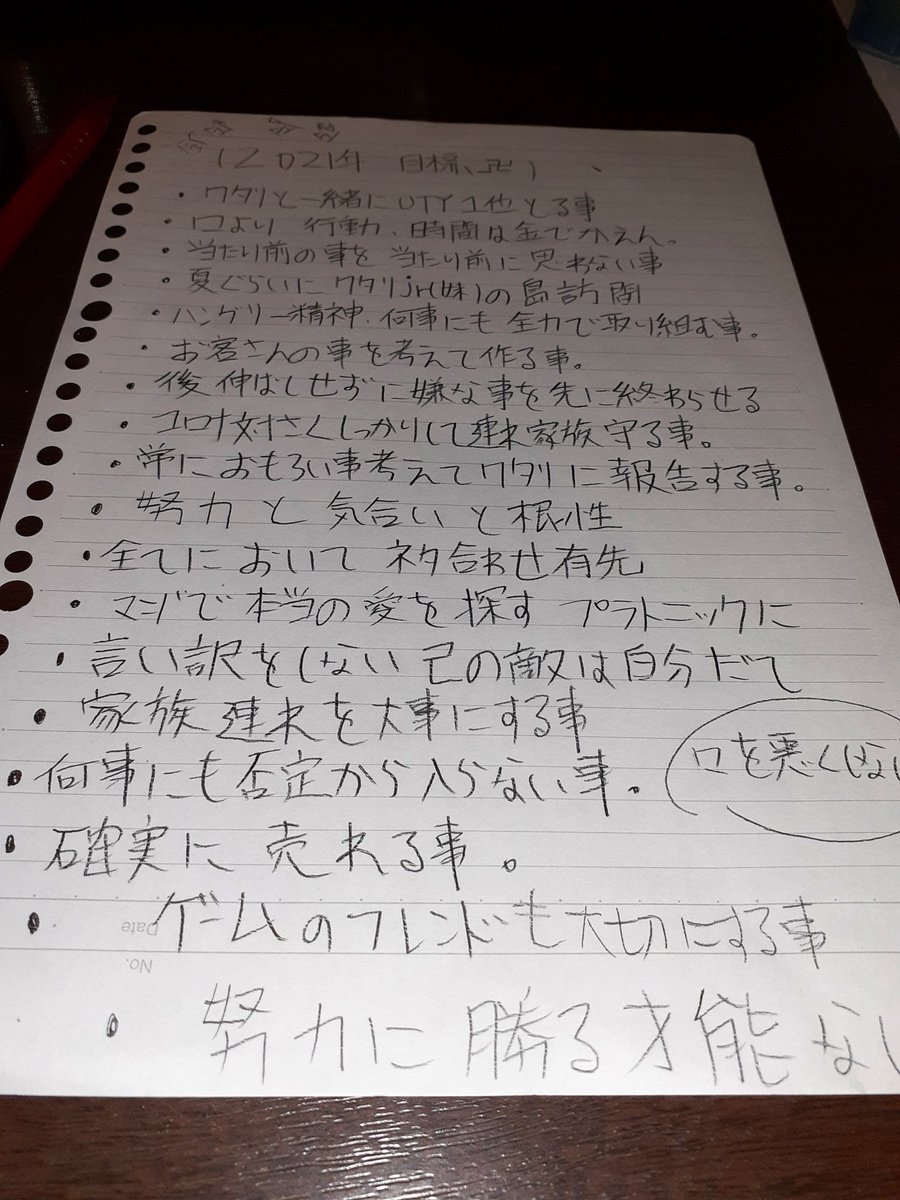 (2021年 目標、卍)
・ワタリと一緒にUTY1位とる事
・口より 行動、時間は金でかえん。
・当たり前の事を 当たり前に思わない事
・夏ぐらいにワタリjr(妹)の島訪問
・ハングリー精神、何事にも 全力で取り組む事。
・お客さんの事を考えて作る事。
・後伸ばしせずに嫌な事を先に終わらせる
・コロナ対さくしっかりして連れ家族守る事。
・常におもろい事考えてワタリに報告する事。
・努力と気合いと根性
・全てにおいて ネタ合わせ有先
・マジで本当の愛を探す プラトニックに
・言い訳をしない 己の敵は自分だて
・家族連れを大事にする事
・何事にも否定から入らない事。
口を悪くしない
・確実に 売れる事。
・ゲームのフレンドも大切にする事
Date
No.
・努力に勝る才能なし